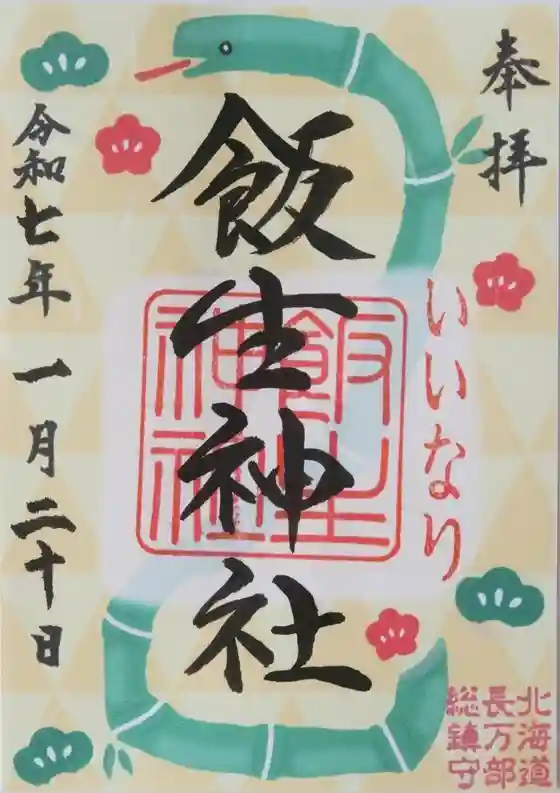 奉拝
いいなり
飯生神社
飯生神社
令和七年 一月二十日
北海道
長万部
総鎮守